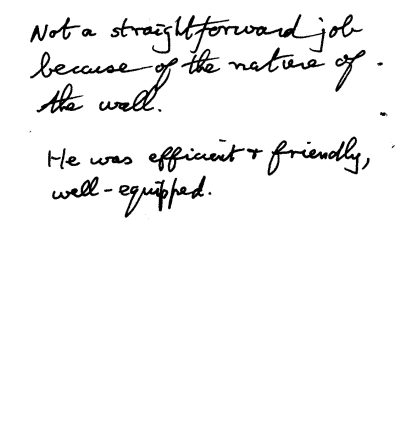 Not a straightforward job
because of the nature of
the wall.
He was efficient + friendly,
well-equipped.